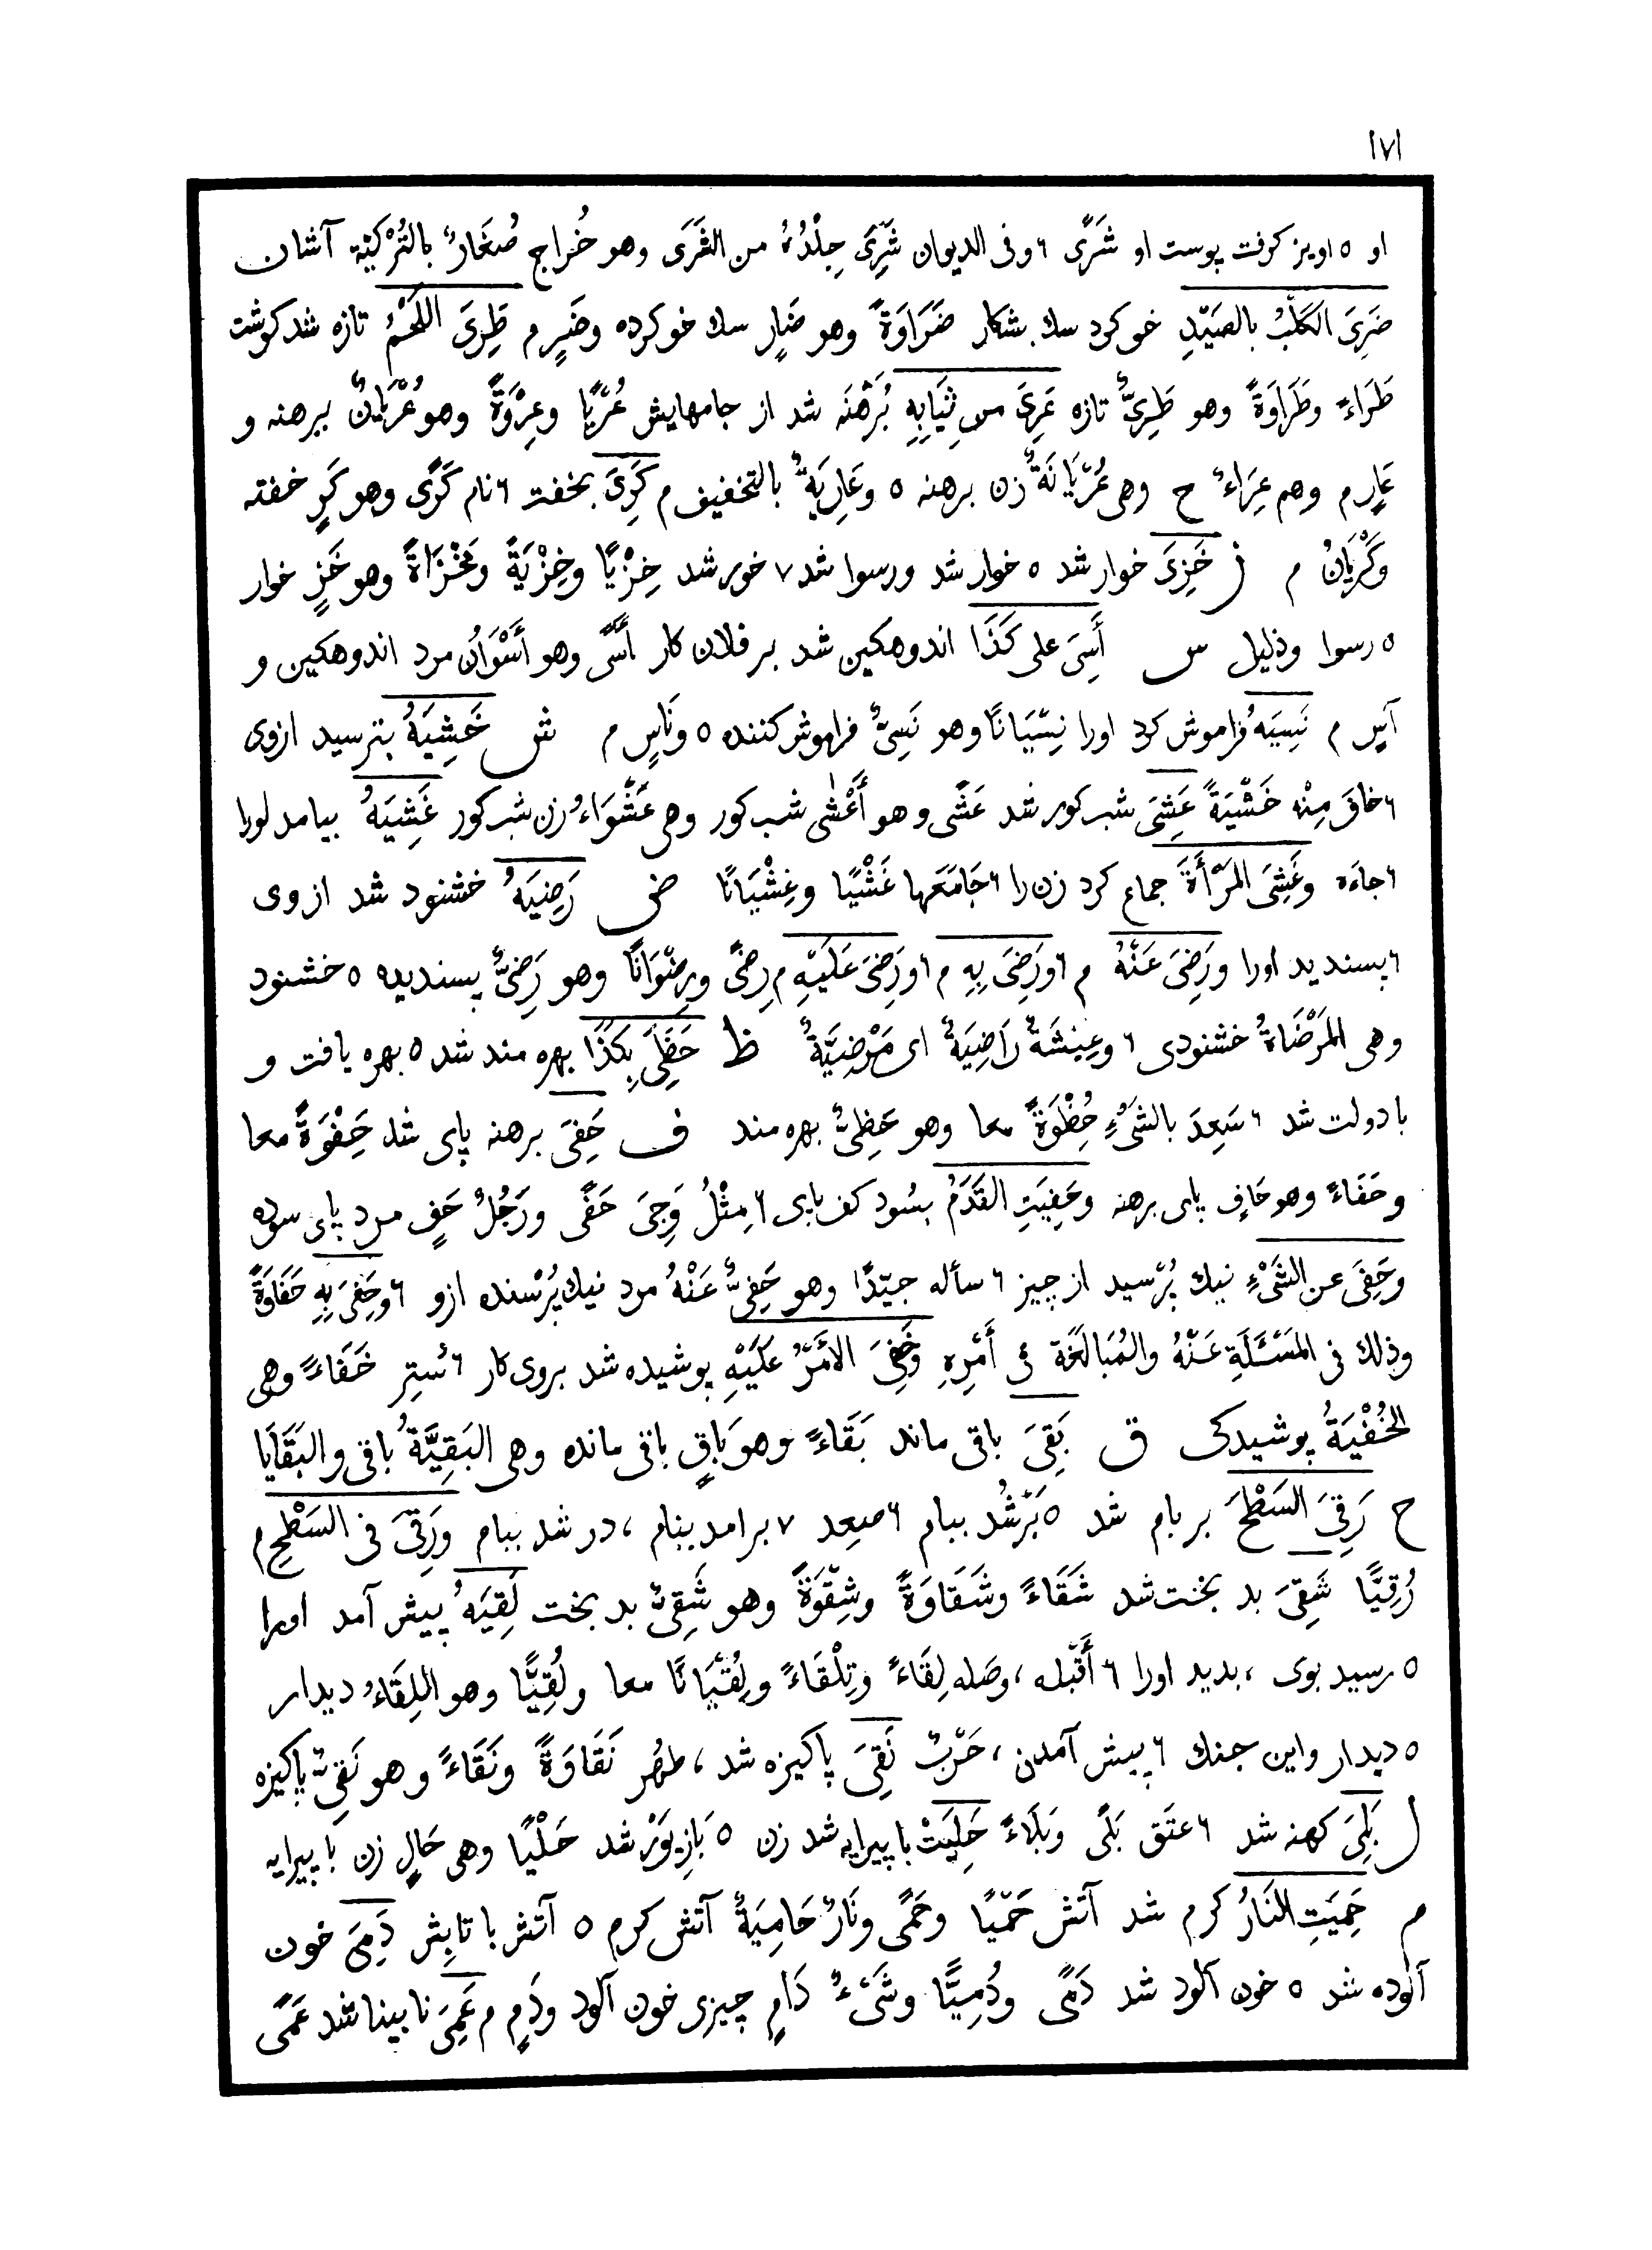 ١٧١
او ٥ اویز کرفت پوست او شَرًى ٦ وفی الدیوان شَرِیَ جِلْدُهُ من الشَرَى وهو خُراج صُغَارٌ بالتُرْکیّة آشان
ضَرِیَ الکَلْبُ بالصَیْدِ خو کرد سك بشکار ضَرَاوَةً وهو ضَارٍ سك خو کرده وضَرٍ م طَرِیَ اللَحْمُ تازه شد کوشت
طَرَاءً وطَرَاوَةً وهو طَرِیٌّ تازه عَرِیَ من ثِیَابِهِ بُرَهْنَه شد از جامهایش عُرْیًا وعِرْوَةً وهو عُرْیَانٌ برهنه و
عَارٍ م وهم عِرَاءٌ ح وهی عُرْیَانَةٌ زن برهنه ٥ وعَارِیَةٌ بالتخفیف م کَرِیَ بخفت ٦ نام کَرًى وهو کَرٍ خفته
وکَرْیَانُ م ز خَزِیَ خوار شد ٥ خوار شد ورسوا شد ٧ خور شد خِزْیًا وخِزْیَةً ومَخْزَاةً وهو خَزٍ خوار
٥ رسوا وذلیل س أَسِیَ علی کَذَا اندوهکین شد بر فلان کار أَسًى وهو أَسْوَانُ مرد اندوهکین و
آسٍ م نَسِیَهُ فراموش کرد اورا نِسْیَانًا وهو نَسِیٌّ فراموش کننده ٥ ونَاسٍ م ش خَشِیَهُ بترسید ازوی
٦ خافَ مِنْه خَشْیَةً عَشِیَ شب کور شد عَشًى وهو أَعْشٰی شب کور وهی عَشْوَاءُ زن شب کور غَشِیَهُ بیامد اورا
٦ جاءَه وغَشِیَ المَرْأَةَ جماع کرد زن را ٦ جَامَعَها غَشْیًا وغِشْیَانًا ض رَضِیَهُ خشنود شد از وی
٦ پسندید اورا ورَضِیَ عَنْهُ م ٦ ورَضِیَ بِهِ م ٦ ورَضِیَ عَلَیْهِ م رِضًى ورِضْوَانًا وهو رَضِیٌّ پسندیده ٥ خشنود
وهی المَرْضَاةُ خشنودی ٦ وعِیشَةٌ رَاضِیَةٌ ای مَرْضِیَّةٌ ظ حَظِیَ بِکَذَا بهره مند شد ٥ بهره یافت و
با دولت شد ٦ سَعِدَ بالشَیْءِ حُِظْوَةً معا وهو حَظِیٌّ بهره مند ف حَفِیَ برهنه پای شد حِفْوَةً معا
وحَفَاءً وهو حَافٍ پای برهنه وحَفِیَتِ القَدَمُ بسُود کف پای ٦ مِثْلُ وَجِیَ حَفًى ورَجُلٌ حَفٍ مرد پای سوده
وحَفِیَ عن الشَیْءِ نیك پُرْسید از چیز ٦ سأله جیّدًا وهو حَفِیٌّ عَنْهُ مرد نیك پُرْسنده ازو ٦ وحَفِیَ بِهِ حَفَاوَةً
وذلك فی المَسْئَلَةِ عَنْهُ والمُبَالَغَة فی أَمْرِهِ وخَفِیَ الأَمْرُ عَلَیْهِ پوشیده شد بروی کار ٦ سُتِر خَفَاءً وهی
الخُفْیَةُ پوشیدکی ق بَقِیَ باقی ماند بَقَاءً وهو بَاقٍ باقی مانده وهی البَقِیَّةُ باقی والبَقَایَا
ح رَقِیَ السَطْحَ بر بام شد ٥ بَرْشُد ببام ٦ صعِد ٧ برامد ببام ، در شد ببام ورَقِیَ فی السَطْحِ م
رُقِیًّا شَقِیَ بد بخت شد شَقَاءً وشَقَاوَةً وشِقْوَةً وهو شَقِیٌّ بد بخت لَقِیَهُ پیش آمد اورا
٥ رسید بوی ، بدید اورا ٦ أَقْبَله ، وصَله لِقَاءً وتِلْقَاءً ولُِقْیَانًا معا ولُقِیًّا وهو اللِقَاءُ دیدار
٥ دیدار واین جنك ٦ پیش آمدن ، حَرْبٌ نَقِیَ پاکیزه شد ، طهُر نَقَاوَةً ونَقَاءً وهو نَقِیٌّ پاکیزه
ل بَلِیَ کهنه شد ٦ عتَق بَلًى وَبَلَاءً حَلِیَتْ با پیرایه شد زن ٥ بَازِیوَرْ شد حَلْیًا وهی حَالٍ زن با پیرایه
م حَمِیَتِ النَارُ کرم شد آتش حَمْیًا وحَمًى ونَارٌ حَامِیَةٌ آتش کرم ٥ آتش با تابِش دَمِیَ خون
آلوده شد ٥ خون آلود شد دَمًى ودُمِیًّا وشَیْءٌ دَامٍ چیزی خون آلود ودَمٍ م عَمِیَ نابینا شد عَمًى